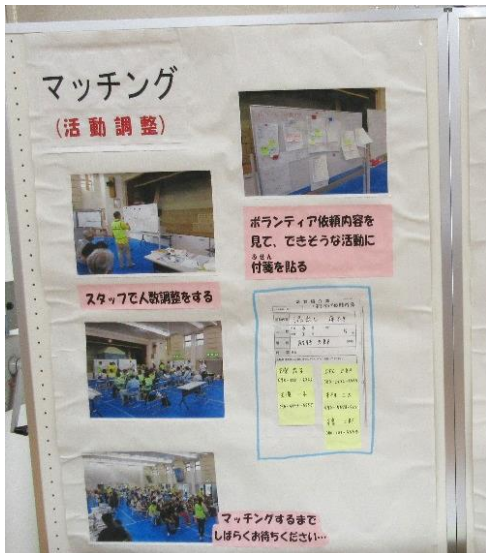 マッチング
(活動調整)
ボランティア依頼内容を
見て、できそうな活動に
ふせん
付箋を貼る
スタッフで人数調整をする
マッチングするまで
しばらくお待ちください…